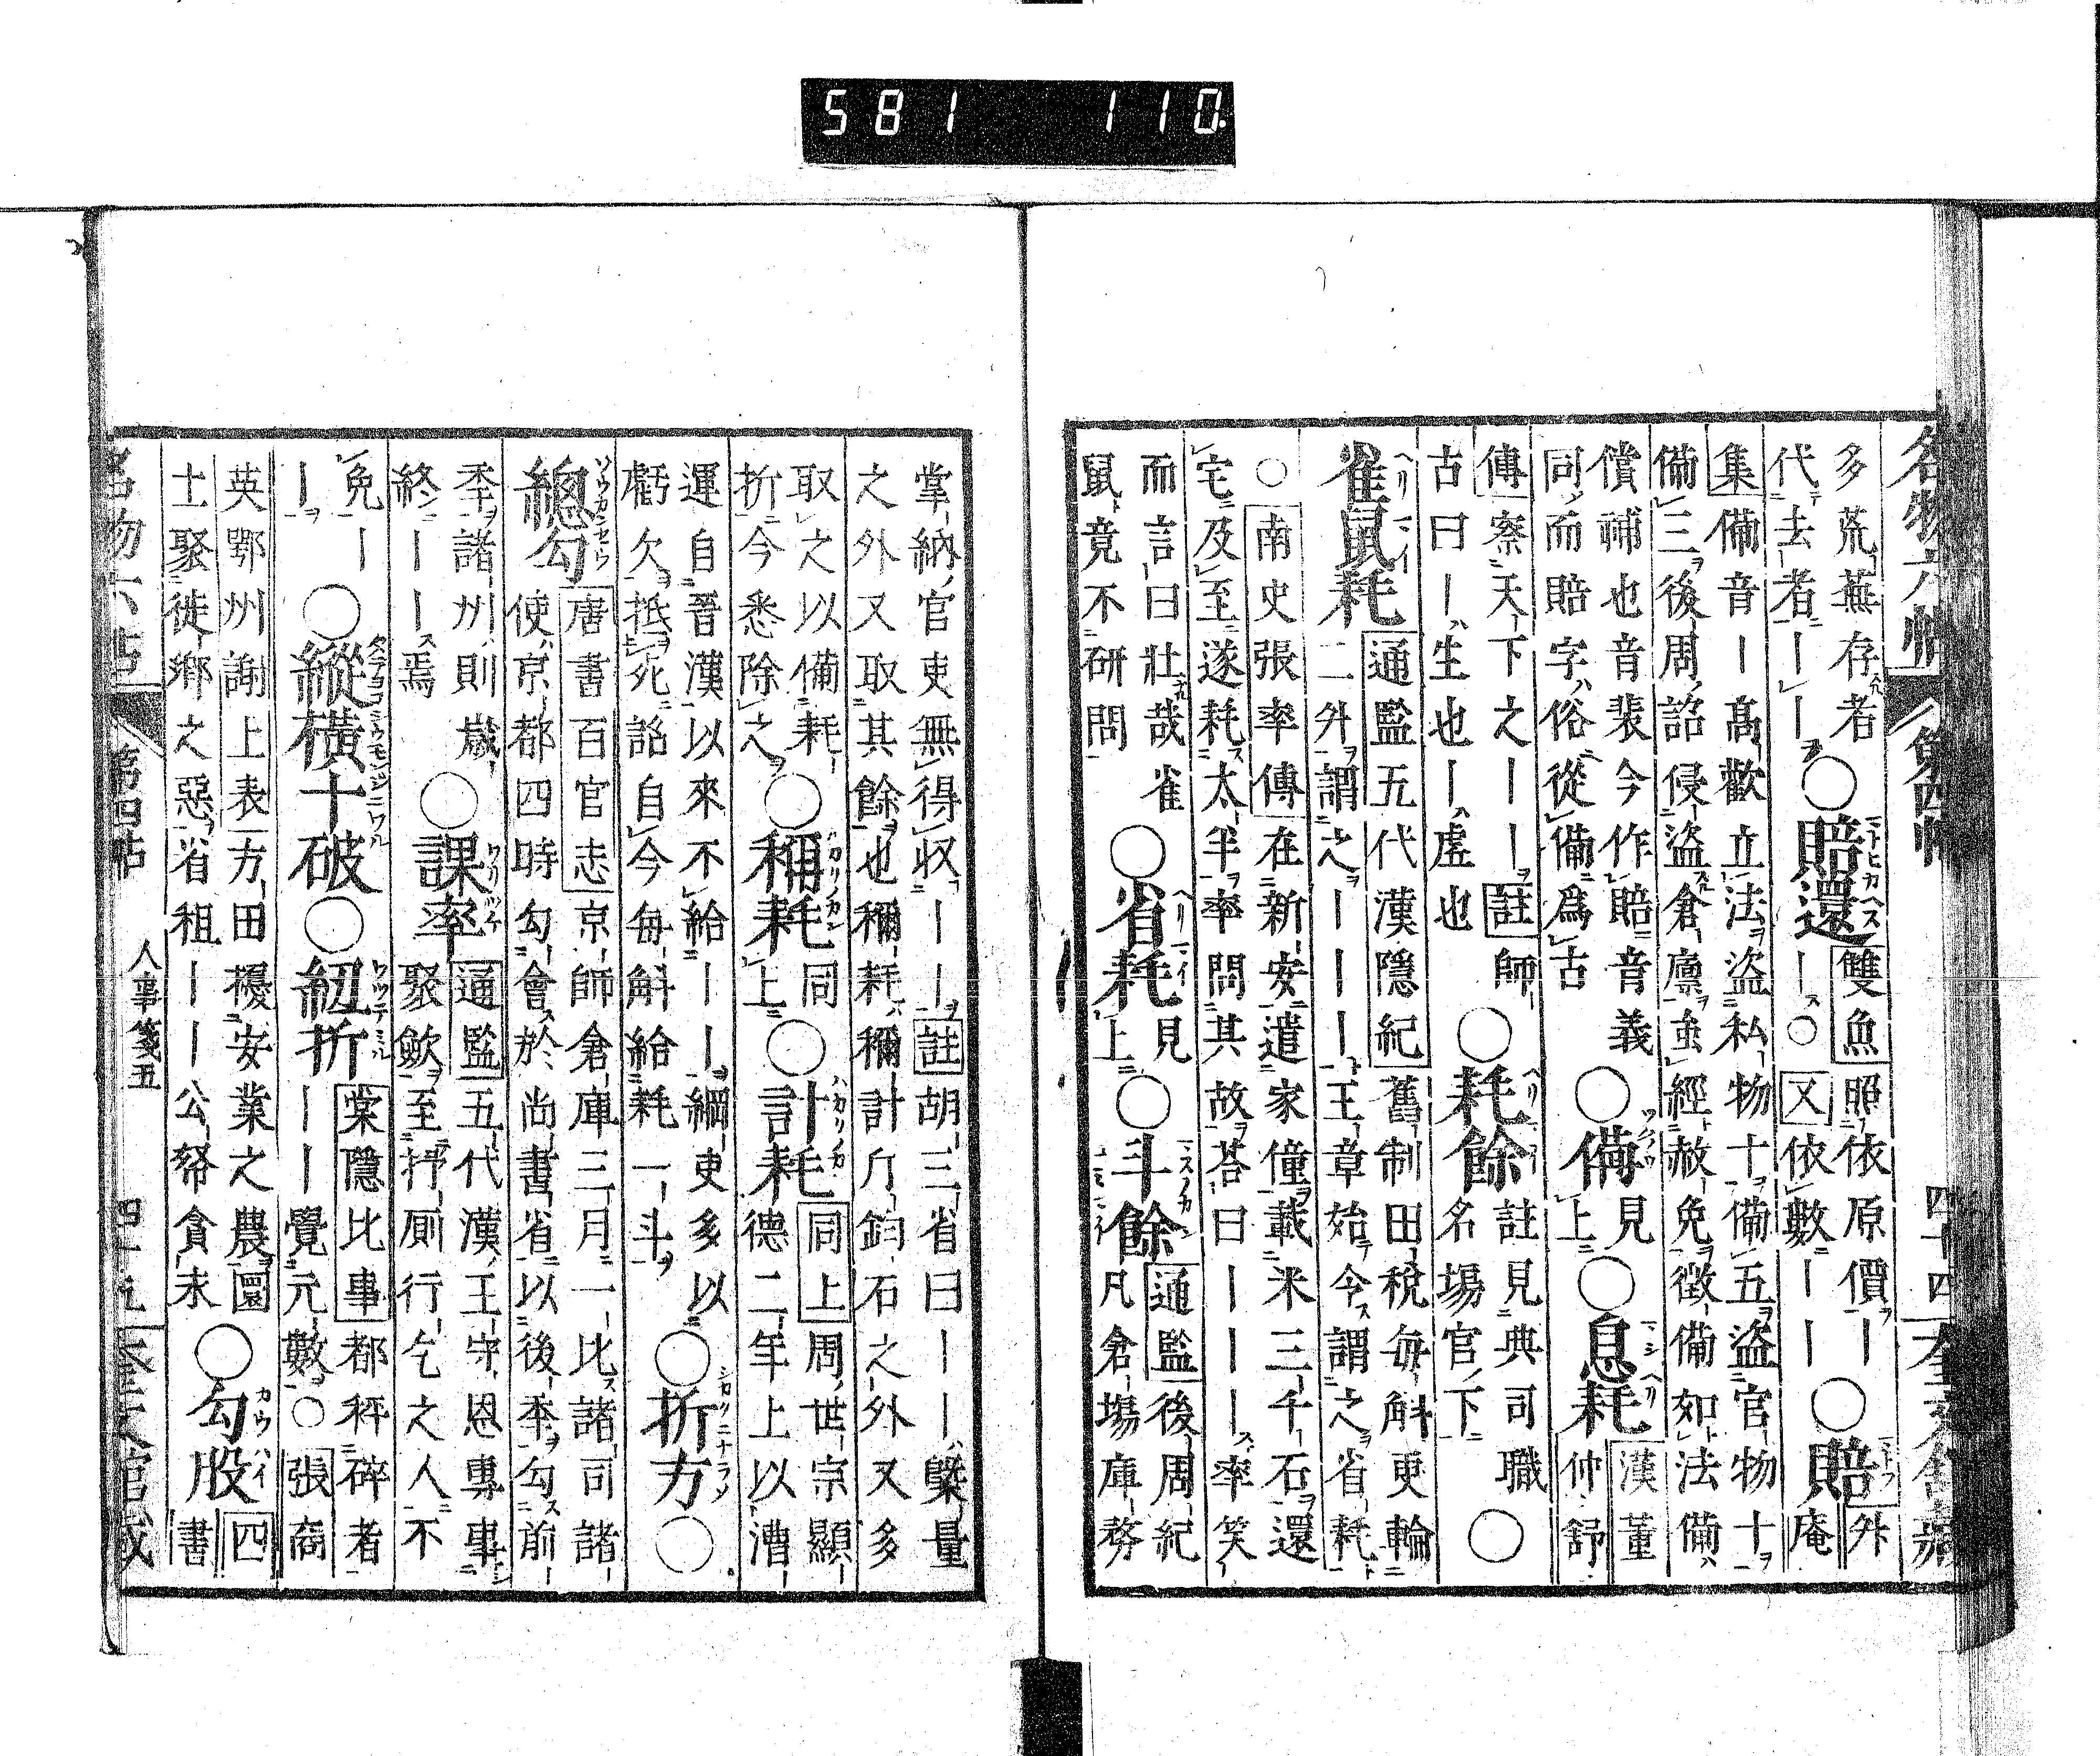 581 110
名物六帖 第四帖 四十四 奎文館藏
多荒蕪存者
代去者｜｜
○賠還
雙魚 照依原價｜
｜○又 依數｜｜
○賠
外
庵
集 備音｜高歡立法盜私物十備五盜官物十
備三後周詔侵盜倉廩雖經赦免徵備如法備
償補也音裴今作賠音義
同而賠字俗從備為古
○備
見
上
○息耗
漢董
仲舒
傳 察天下之｜｜ 註 師
古曰｜生也｜虛也
○耗餘
註見典司職
名場官下
○
雀鼠耗
通鑑五代漢隱紀 舊制田稅每斛更輸
二舛謂之｜｜｜王章始令謂之省耗
○南史張率傳 在新安遣家僮載米三千石還
宅及至遂耗太半率問其故荅曰｜｜｜率笑
而言曰壯哉雀
鼠竟不研問
○省耗
見
上
○斗餘
通鑑 後周紀
凡倉場庫務
掌納官吏無得収｜｜ 註 胡三省曰｜｜槩量
之外又取其餘也稱耗稱計斤鈞石之外又多
取之以備耗
折今悉除之
○稱耗
同
上
○計耗
同上 周世宗顯
德二年上以漕
運自晉漢以來不給｜｜綱吏多以
虧欠抵死詔自今每斛給耗一斗
○折方
○
總勾
唐書百官志 京師倉庫三月一比諸司諸
使京都四時勾會於尚書省以後季勾前
季諸州則歲
終｜｜焉
○課率
通鑑 五代漢王守恩專事
聚歛至抒厠行乞之人不
免｜
｜
○縱橫十破
○紐折
棠隱比事 都秤碎者
｜｜覺元數○張商
英鄂州謝上表 方田擾安業之農園
士聚徒鄉之惡省租｜｜公帑貪未
○勾股
四
書
名物六帖 第四帖 人事箋五